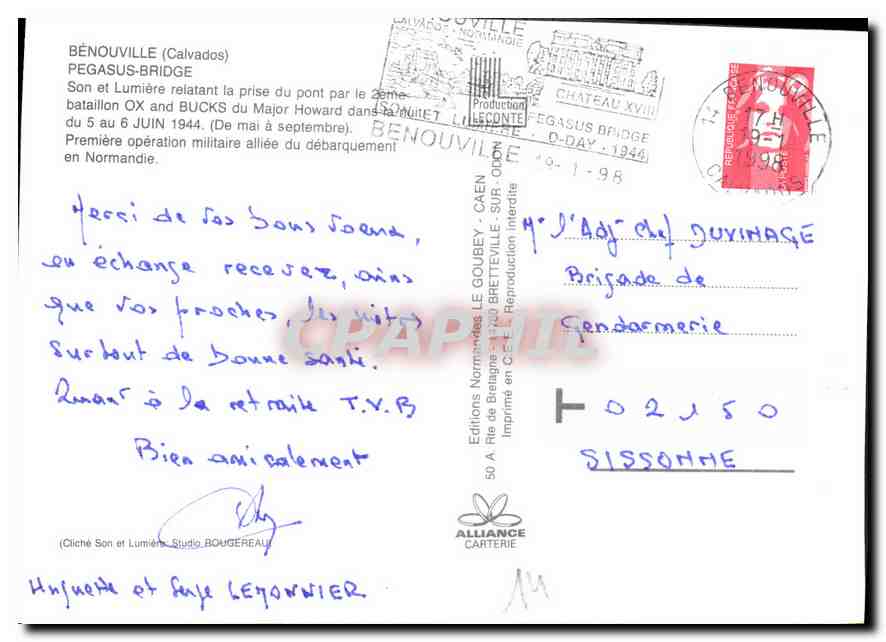 BÉNOUVILLE (Calvados)
PEGASUS-BRIDGE
Son et Lumière relatant la prise du pont par le 2ème
bataillon OX and BUCKS du Major Howard dans la nuit
du 5 au 6 JUIN 1944. (De mai à septembre).
Première opération militaire alliée du débarquement
en Normandie.
BENOUVILLE
CALVADOS - NORMANDIE
CHATEAU XVIII
Production
LECONTE
SON ET LUMIERE
PEGASUS BRIDGE
D-DAY - 1944
BENOUVILLE
19-1-98
14 BENOUVILLE
17H
19-1
1998
CALVADOS
RÉPUBLIQUE FRANÇAISE
LA POSTE
Merci de vos bons voeux,
en échange recevez, ains
que vos proches, les nôtres
surtout de bonne santé.
Quant à la retraite T.V.B
Bien amicalement
(Cliché Son et Lumière: Studio BOUGEREAU)
Huguette et Serge LEMONNIER
Editions Normandes LE GOUBEY - CAEN
50 A, Rte de Bretagne - 14760 BRETTEVILLE - SUR - ODON
Imprimé en C.E.E. Reproduction interdite
ALLIANCE
CARTERIE
Mr l'Adjt Chef DUVINAGE
Brigade de
Gendarmerie
T 02150
SISSONNE
14
CPAPHIL